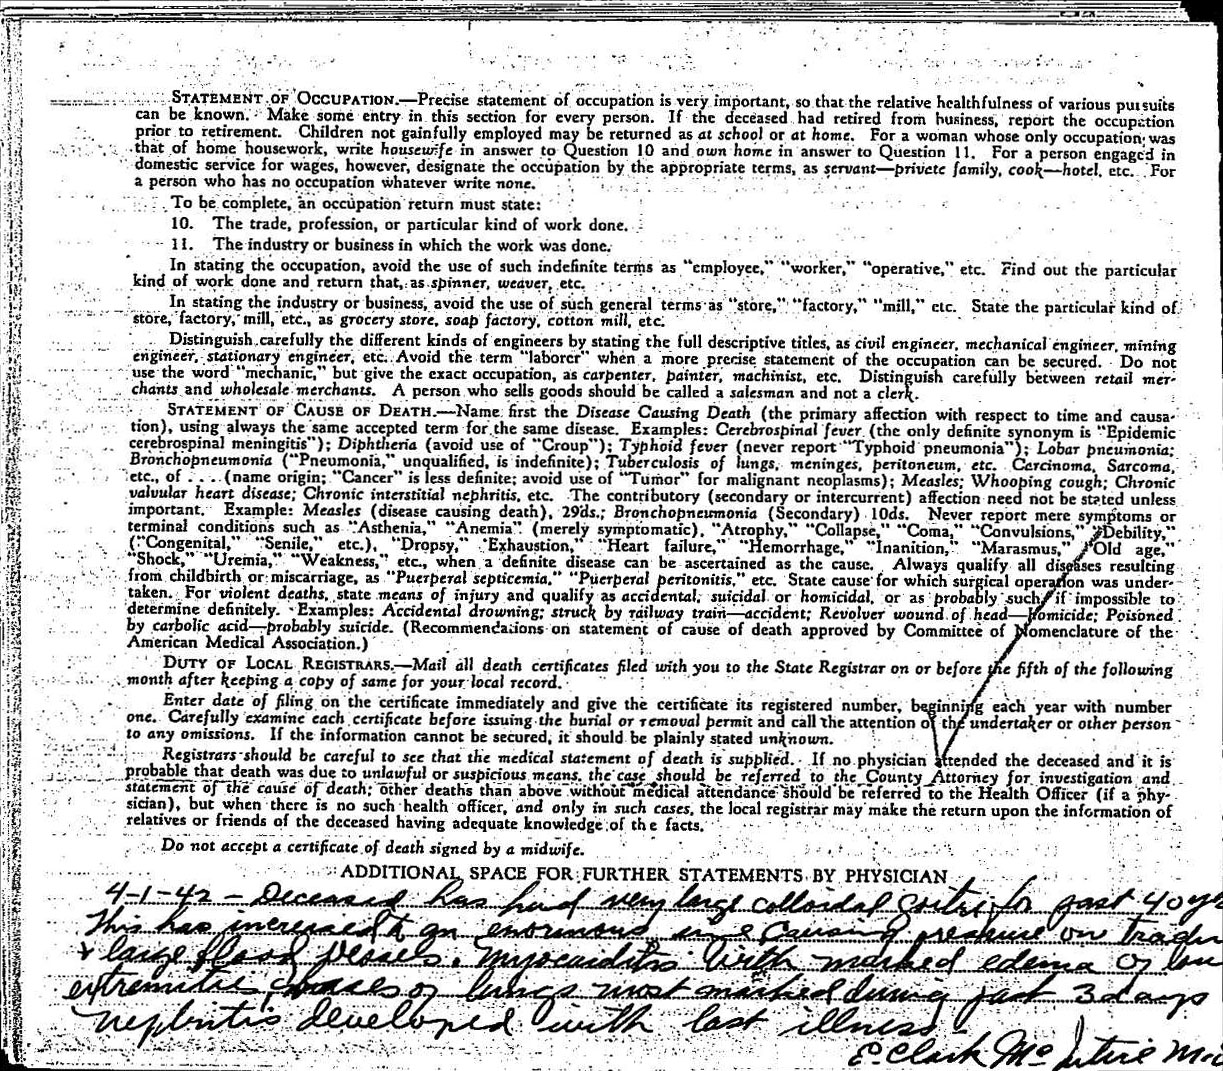 STATEMENT OF OCCUPATION.—Precise statement of occupation is very important, so that the relative healthfulness of various pursuits
can be known. Make some entry in this section for every person. If the deceased had retired from business, report the occupation
prior to retirement. Children not gainfully employed may be returned as at school or at home. For a woman whose only occupation was
that of home housework, write housewife in answer to Question 10 and own home in answer to Question 11. For a person engaged in
domestic service for wages, however, designate the occupation by the appropriate terms, as servant—private family, cook—hotel, etc. For
a person who has no occupation whatever write none.
To be complete, an occupation return must state:
10. The trade, profession, or particular kind of work done.
11. The industry or business in which the work was done.
In stating the occupation, avoid the use of such indefinite terms as "employee," "worker," "operative," etc. Find out the particular
kind of work done and return that, as spinner, weaver, etc.
In stating the industry or business, avoid the use of such general terms as "store," "factory," "mill," etc. State the particular kind of
store, factory, mill, etc., as grocery store, soap factory, cotton mill, etc.
Distinguish carefully the different kinds of engineers by stating the full descriptive titles, as civil engineer, mechanical engineer, mining
engineer, stationary engineer, etc. Avoid the term "laborer" when a more precise statement of the occupation can be secured. Do not
use the word "mechanic," but give the exact occupation, as carpenter, painter, machinist, etc. Distinguish carefully between retail mer-
chants and wholesale merchants. A person who sells goods should be called a salesman and not a clerk.
STATEMENT OF CAUSE OF DEATH.—Name first the Disease Causing Death (the primary affection with respect to time and causa-
tion), using always the same accepted term for the same disease. Examples: Cerebrospinal fever (the only definite synonym is "Epidemic
cerebrospinal meningitis"); Diphtheria (avoid use of "Croup"); Typhoid fever (never report "Typhoid pneumonia"); Lobar pneumonia;
Bronchopneumonia ("Pneumonia," unqualified, is indefinite); Tuberculosis of lungs, meninges, peritoneum, etc. Carcinoma, Sarcoma,
etc., of . . . (name origin; "Cancer" is less definite; avoid use of "Tumor" for malignant neoplasms); Measles; Whooping cough; Chronic
valvular heart disease; Chronic interstitial nephritis, etc. The contributory (secondary or intercurrent) affection need not be stated unless
important. Example: Measles (disease causing death), 29ds.; Bronchopneumonia (Secondary) 10ds. Never report mere symptoms or
terminal conditions such as "Asthenia," "Anemia" (merely symptomatic), "Atrophy," "Collapse," "Coma," "Convulsions," "Debility,"
("Congenital," "Senile," etc.), "Dropsy," "Exhaustion," "Heart failure," "Hemorrhage," "Inanition," "Marasmus," "Old age,"
"Shock," "Uremia," "Weakness," etc., when a definite disease can be ascertained as the cause. Always qualify all diseases resulting
from childbirth or miscarriage, as "Puerperal septicemia," "Puerperal peritonitis," etc. State cause for which surgical operation was under-
taken. For violent deaths, state means of injury and qualify as accidental, suicidal or homicidal, or as probably such, if impossible to
determine definitely. Examples: Accidental drowning; struck by railway train—accident; Revolver wound of head—homicide; Poisoned
by carbolic acid—probably suicide. (Recommendations on statement of cause of death approved by Committee of Nomenclature of the
American Medical Association.)
DUTY OF LOCAL REGISTRARS.—Mail all death certificates filed with you to the State Registrar on or before the fifth of the following
month after keeping a copy of same for your local record.
Enter date of filing on the certificate immediately and give the certificate its registered number, beginning each year with number
one. Carefully examine each certificate before issuing the burial or removal permit and call the attention of the undertaker or other person
to any omissions. If the information cannot be secured, it should be plainly stated unknown.
Registrars should be careful to see that the medical statement of death is supplied. If no physician attended the deceased and it is
probable that death was due to unlawful or suspicious means, the case should be referred to the County Attorney for investigation and
statement of the cause of death; other deaths than above without medical attendance should be referred to the Health Officer (if a phy-
sician), but when there is no such health officer, and only in such cases, the local registrar may make the return upon the information of
relatives or friends of the deceased having adequate knowledge of the facts.
Do not accept a certificate of death signed by a midwife.
ADDITIONAL SPACE FOR FURTHER STATEMENTS BY PHYSICIAN
4-1-42 - Deceased has had very large colloidal goitre for past 40
This has increased to an enormous size causing pressure on
& large blood vessels. Myocarditis with marked edema of
extremities & bases of lungs most marked during past 3 days
nephritis developed with last illness
E. Clark McIntire M.D.